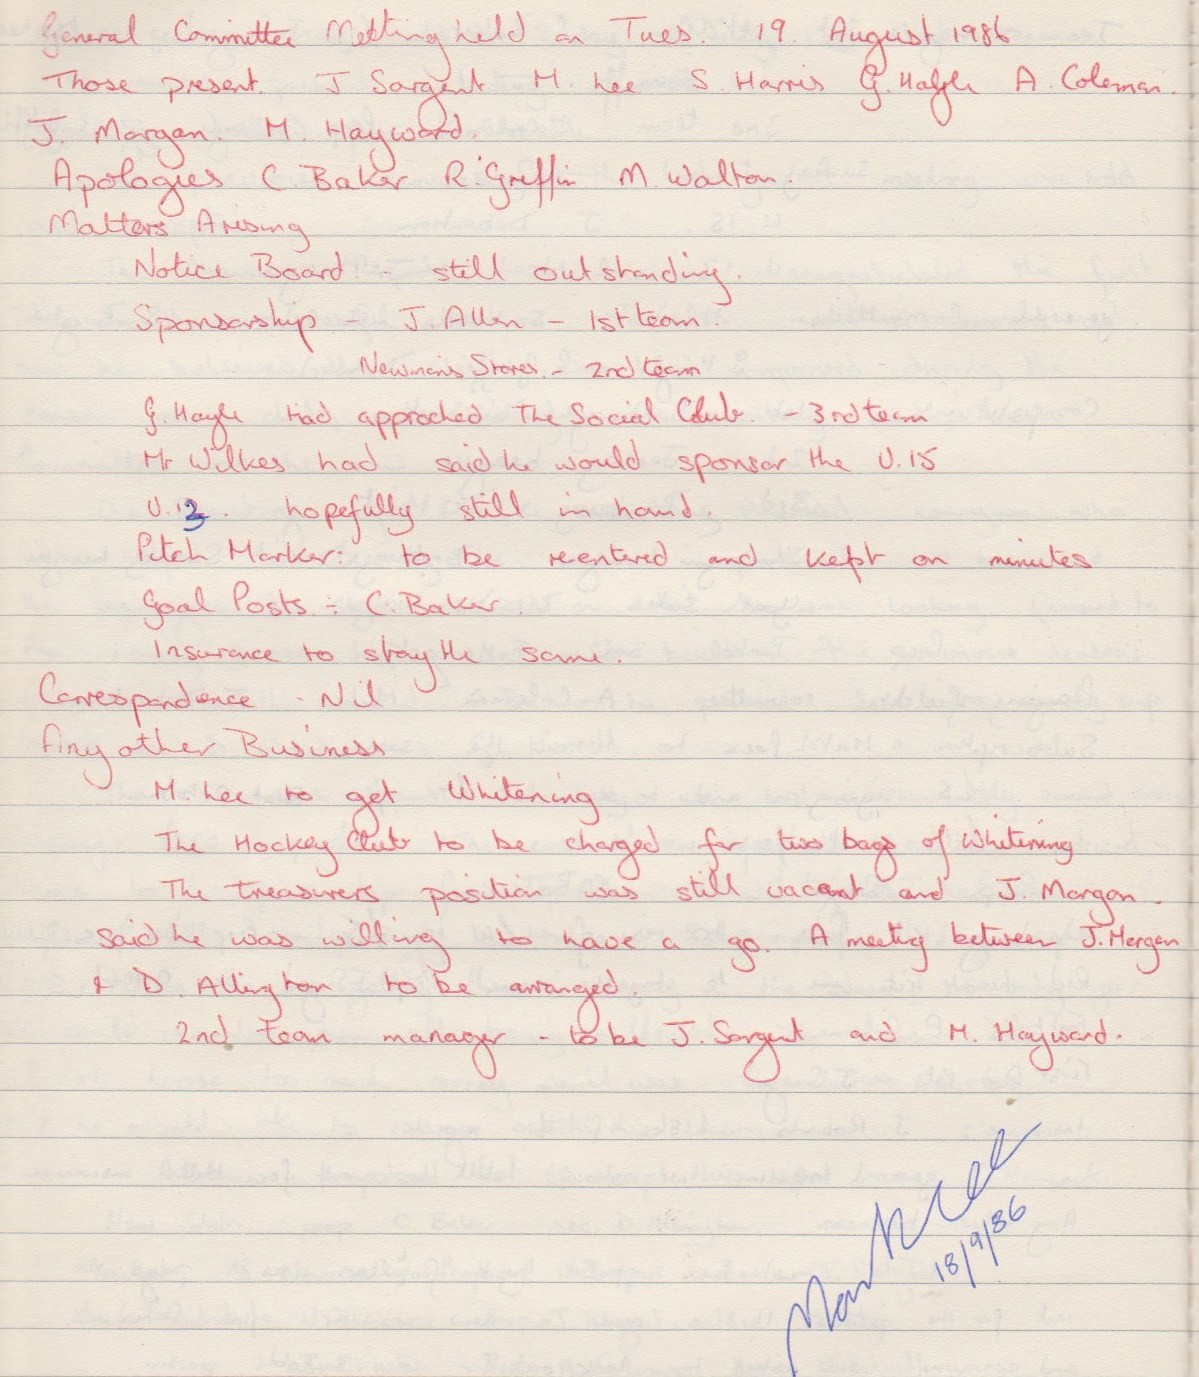 General Committee Meeting held on Tues. 19. August 1986
Those present. J Sargent M. Lee S. Harris G. Hayle A. Coleman.
J. Morgan. M. Hayward.
Apologies C. Baker R. Griffin M. Walton.
Matters Arising
Notice Board - still outstanding.
Sponsorship - J. Allen - 1st team.
Newman's Stores. - 2nd team
G. Hayle had approched The Social Club. - 3rd team
Mr Wilkes had said he would sponsor the U.15
U.13. hopefully still in hand.
Pitch Marker: to be reentered and kept on minutes
Goal Posts :- C. Baker.
Insurance to stay the same.
Correspondence - Nil
Any other Business
M. Lee to get Whitening
The Hockey Club to be charged for two bags of Whitening
The treasurers position was still vacant and J. Morgan
said he was willing to have a go. A meeting between J. Morgan
& D. Allington to be arranged.
2nd team manager - to be J. Sargent and M. Hayward.
Mark Lee
18/9/86